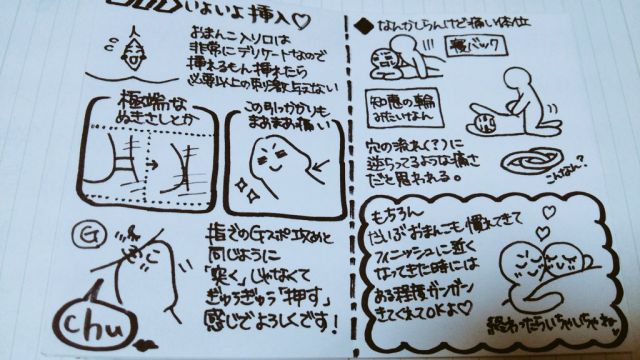 いよいよ挿入♡
おまんこ入り口は
非常にデリケートなので
挿れるもん挿れたら
必要以上の刺激は与えない
極端な
ぬきさしとか
この引っかかりも
まあまあ痛い
G
指でのGスポ攻めと
同じように
「突く」じゃなくて
ぎゅうぎゅう「押す」
感じでよろしくです!
chu
◆なんかしらんけど痛い体位
寝バック
知恵の輪
みたいなもん
穴の流れ(?)に
逆らってるような痛さ
だと思われる。
こんなん?
もちろん
だいぶおまんこも慣れてきて
フィニッシュに近く
なってきた時には
ある程度ガンガン
きてくれてOKよ♡
終わったらいちゃいちゃね♡